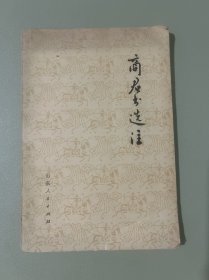 商君书选注
山东人民出版社